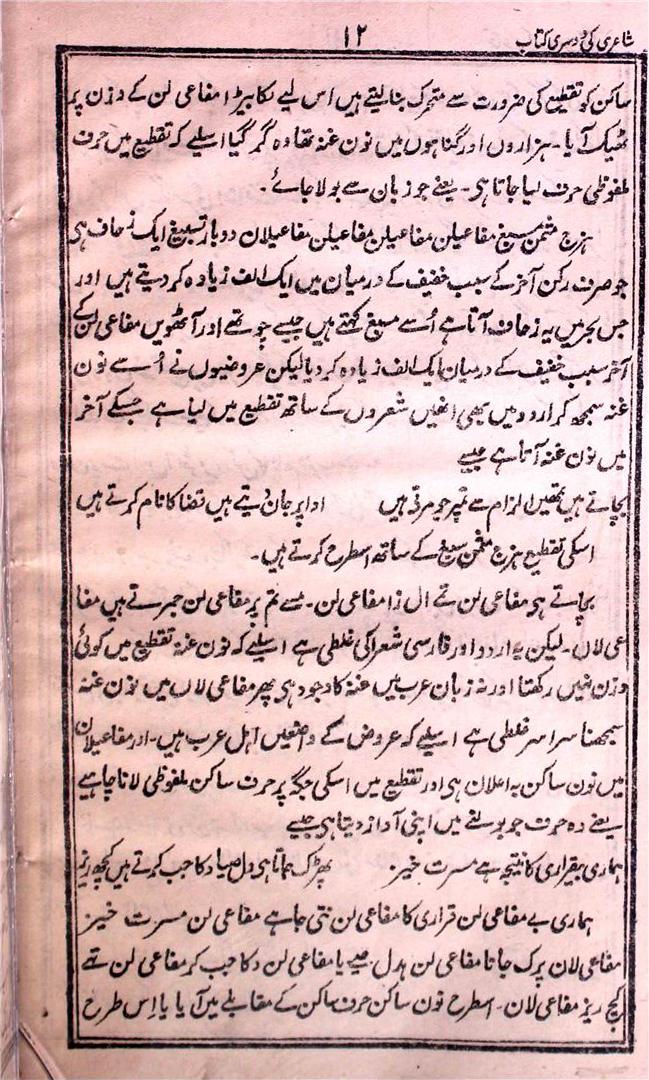 شاعری کی دوسری کتاب
۱۲
ساکن کو تقطیع کی ضرورت سے متحرک بنا لیتے ہیں اس لیے لکا بیڑا مفاعی لن کے وزن پر
ٹھیک آیا۔ ہزاروں اور گناہوں میں نون غنہ تھا وہ گر گیا اسلیے کہ تقطیع میں حرف
ملفوظی حرف لیا جاتا ہی۔ یعنے جو زبان سے بولا جاۓ۔
ہزج مثمن مسبغ مفاعیلن مفاعیلن مفاعیلن مفاعیلان دوبار تسبیغ ایک زحاف ہی
جو صرف رکن آخر کے سبب خفیف کے درمیان میں ایک الف زیادہ کر دیتے ہیں اور
جس بحر میں یہ زحاف آتا ہے اُسے مسبغ کہتے ہیں جیسے چوتھے اور آٹھویں مفاعی لن کے
آخر سبب خفیف کے درمیان ایک الف زیادہ کر دیا لیکن عروضیوں نے اُسے نون
غنہ سمجھ کر اردو میں بھی انھیں شعروں کے ساتھ تقطیع میں لیا ہے جسکے آخر
میں نون غنہ آتا ہے جیسے
بچاتے ہیں تمھیں الزام سے تمپر جو مرتے ہیں ادا پر جان دیتے ہیں قضا کا نام کرتے ہیں
اسکی تقطیع ہزج مثمن مسبغ کے ساتھ اسطرح کرتے ہیں۔
بچاتے ہی مفاعی لن تے ال زا مفاعی لن۔ مسے تم پر مفاعی لن جمرتے ہیں مفا
عی لاں۔ لیکن یہ اردو اور فارسی شعرا کی غلطی ہے اسلیے کہ نون غنہ تقطیع میں کوئی
وزن نہیں رکھتا اور نہ زبان عرب میں غنہ کا وجود ہی پھر مفاعی لاں میں نون غنہ
سمجھنا سراسر غلطی ہے اسلیے کہ عروض کے واضعیں اہل عرب ہیں۔ اور مفاعیلان
میں نون ساکن بہ اعلان ہی اور تقطیع میں اسکی جگہ پر حرف ساکن ملفوظی لانا چاہیے
یعنے وہ حرف جو بولنے میں اپنی آواز دیتا ہی جیسے
ہماری بیقراری کا نتیجہ ہے مسرت خیز پھڑک جاتا ہی دل صیاد کا جب کرتے ہیں کچھ ریز
ہماری بے مفاعی لن قراری کا مفاعی لن نتی جا ہے مفاعی لن مسرت خیز
مفاعی لان پرک جاتا مفاعی لن ہدل صے یا مفاعی لن دکا جب کر مفاعی لن تے
کچ ریز مفاعی لان۔ اسطرح نون ساکن حرف ساکن کے مقابلے میں آیا یا اس طرح